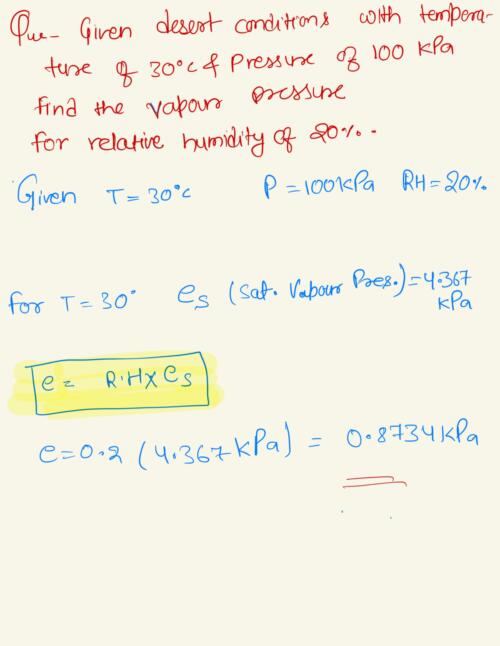 Que- Given desert conditions with tempera-
ture of 30°C & Pressure of 100 kPa
find the vapour pressure
for relative humidity of 20%.
Given T = 30°C P = 100kPa RH = 20%
for T = 30° es (Sat. Vapour Pres.) = 4.367
kPa
e = R.H x es
e = 0.2 (4.367 kPa) = 0.8734 kPa